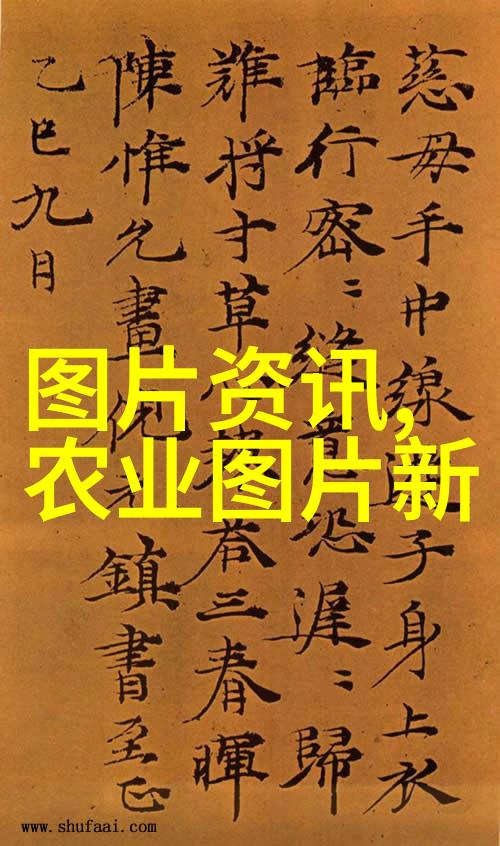 慈母手中線子身上衣
臨行密〻縫意恐遲〻歸
難将寸草荅三春暉
陳惟允畫倪鎮書至正
乙巳九月
图片资讯,
农业图片新
www.shufaai.com